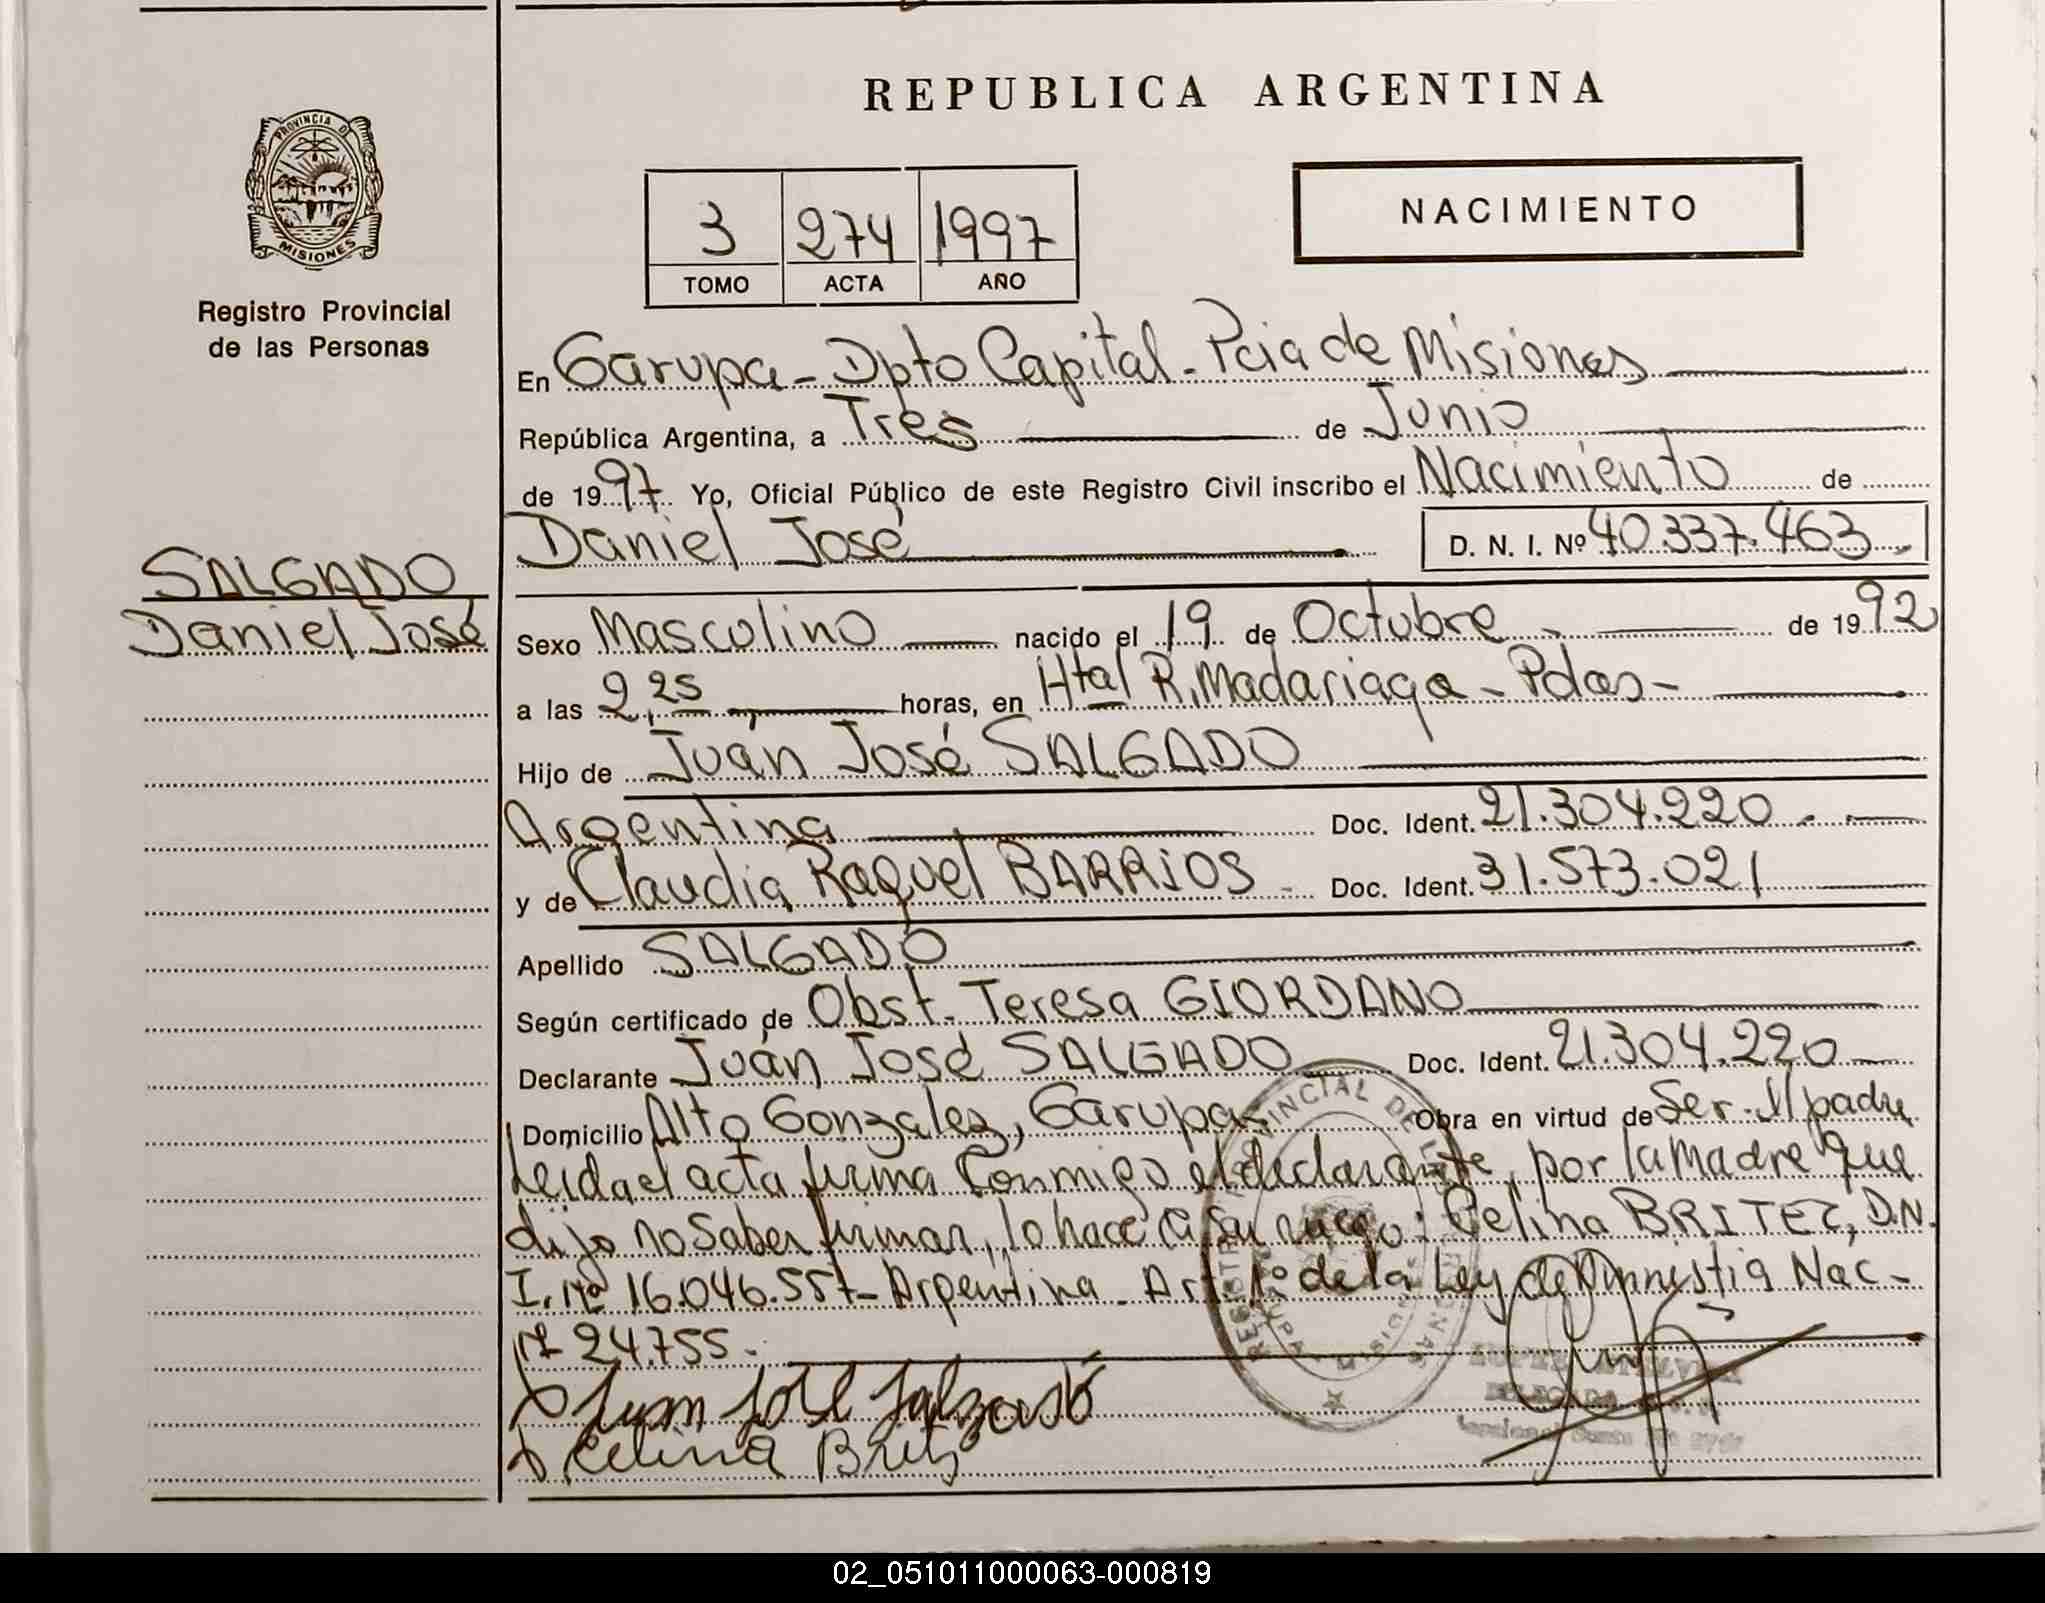 REPUBLICA ARGENTINA
PROVINCIA DE
MISIONES
Registro Provincial
de las Personas
3 274 1997
TOMO ACTA AÑO
NACIMIENTO
En Garupa - Dpto Capital - Pcia de Misiones
República Argentina, a Tres de Junio
de 1997 Yo, Oficial Público de este Registro Civil inscribo el Nacimiento de
Daniel José D. N. I. Nº 40.337.463
SALGADO
Daniel José
Sexo Masculino nacido el 19 de Octubre de 1992
a las 2,25 horas, en Htal R. Madariaga - Pdas -
Hijo de Juán José SALGADO
Argentina Doc. Ident. 21.304.220
y de Claudia Raquel BARRIOS Doc. Ident. 31.573.021
Apellido SALGADO
Según certificado de Obst. Teresa GIORDANO
Declarante Juán José SALGADO Doc. Ident. 21.304.220
Domicilio Alto Gonzalez, Garupa Obra en virtud de Ser el padre
Leida el acta firma Conmigo el declarante, por la madre que
dijo no saber firmar, lo hace a su ruego: Celina BRITEZ, D.N.
I. Nº 16.046.557 - Argentina - Art. 1º de la Ley de Amnistia Nac -
Nº 24.755.
Juan José Salgado
Celina Britz
DELEGADA
02_051011000063-000819